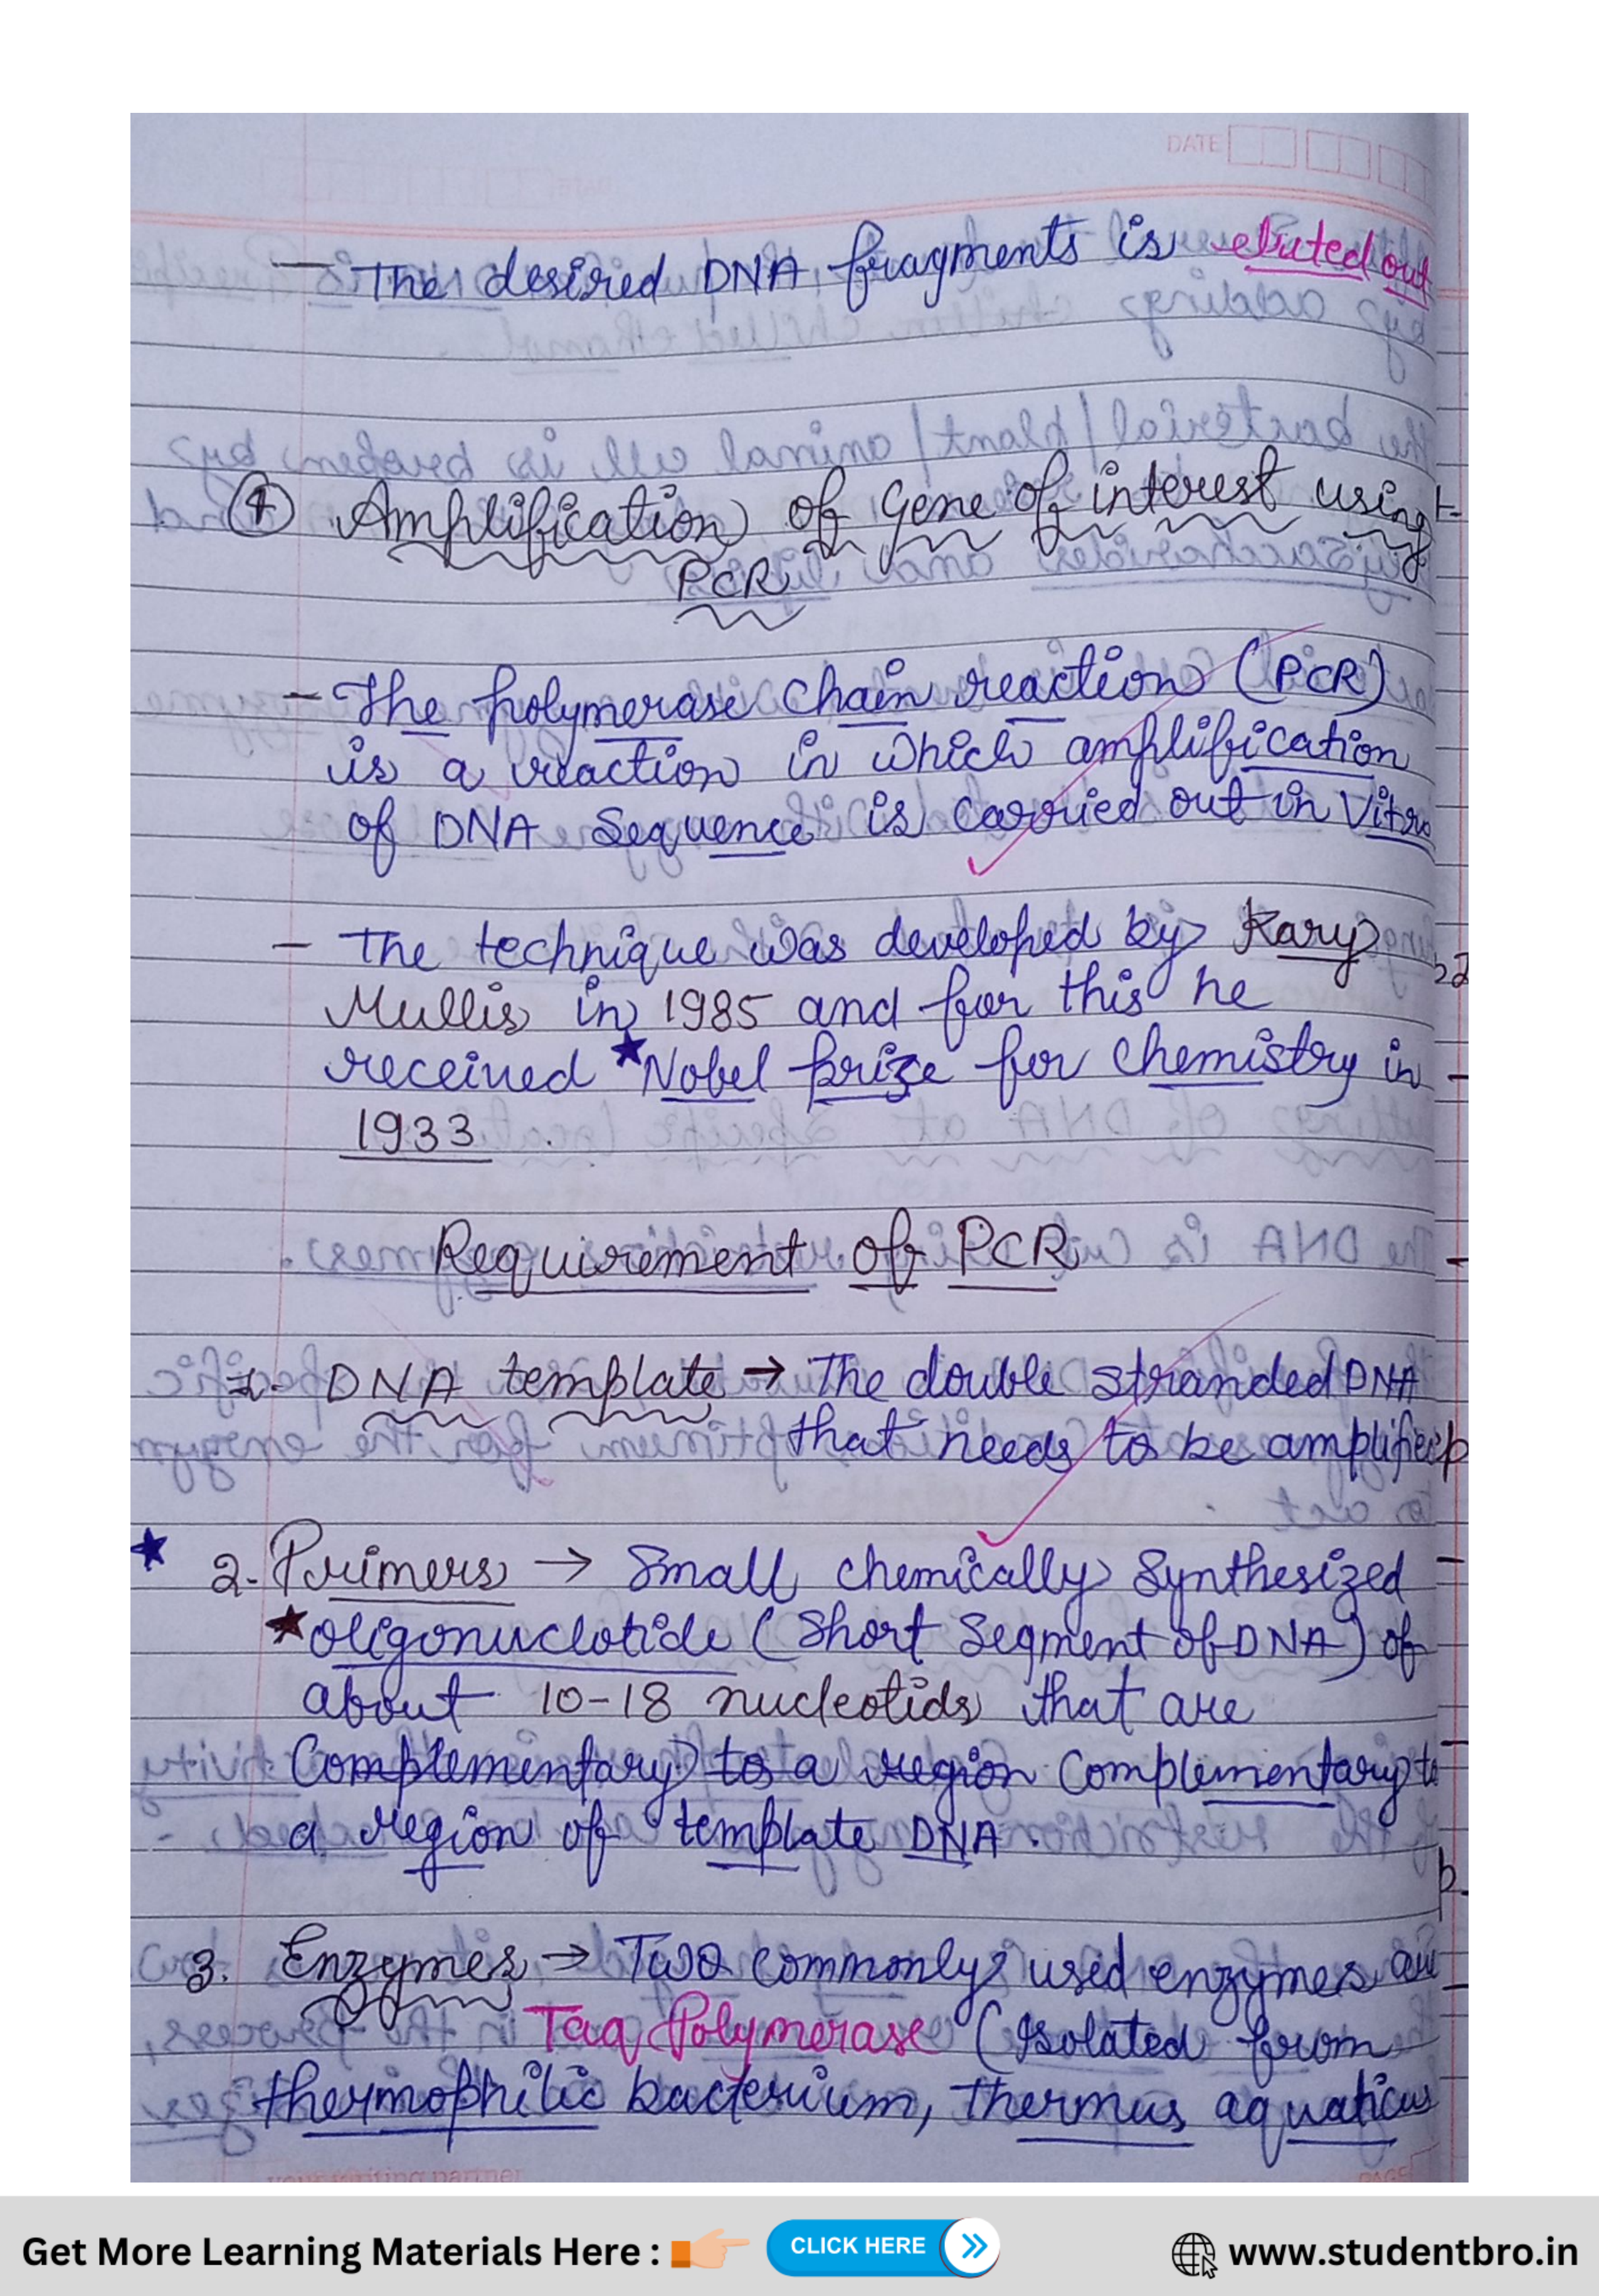 DATE
- The desired DNA fragments is eluted out
④ Amplification of gene of interest using
PCR
- The polymerase chain reaction (PCR)
is a reaction in which amplification
of DNA Sequence is carried out in Vitro
- The technique was developed by Kary
Mullis in 1985 and for this he
received ★Nobel prize for chemistry in
1933
Requirement of PCR
1- DNA template → The double stranded DNA
that needs to be amplified
★ 2- Primers → Small chemically Synthesized
★oligonuclotide (Short Segment of DNA) of
about 10-18 nucleotids that are
Complementary to a region Complementary to
a region of template DNA.
3. Enzymes → Two commonly used enzymes are
Taq Polymerase (Isolated from
thermophilic bacterium, thermus aquaticus
Get More Learning Materials Here : CLICK HERE www.studentbro.in